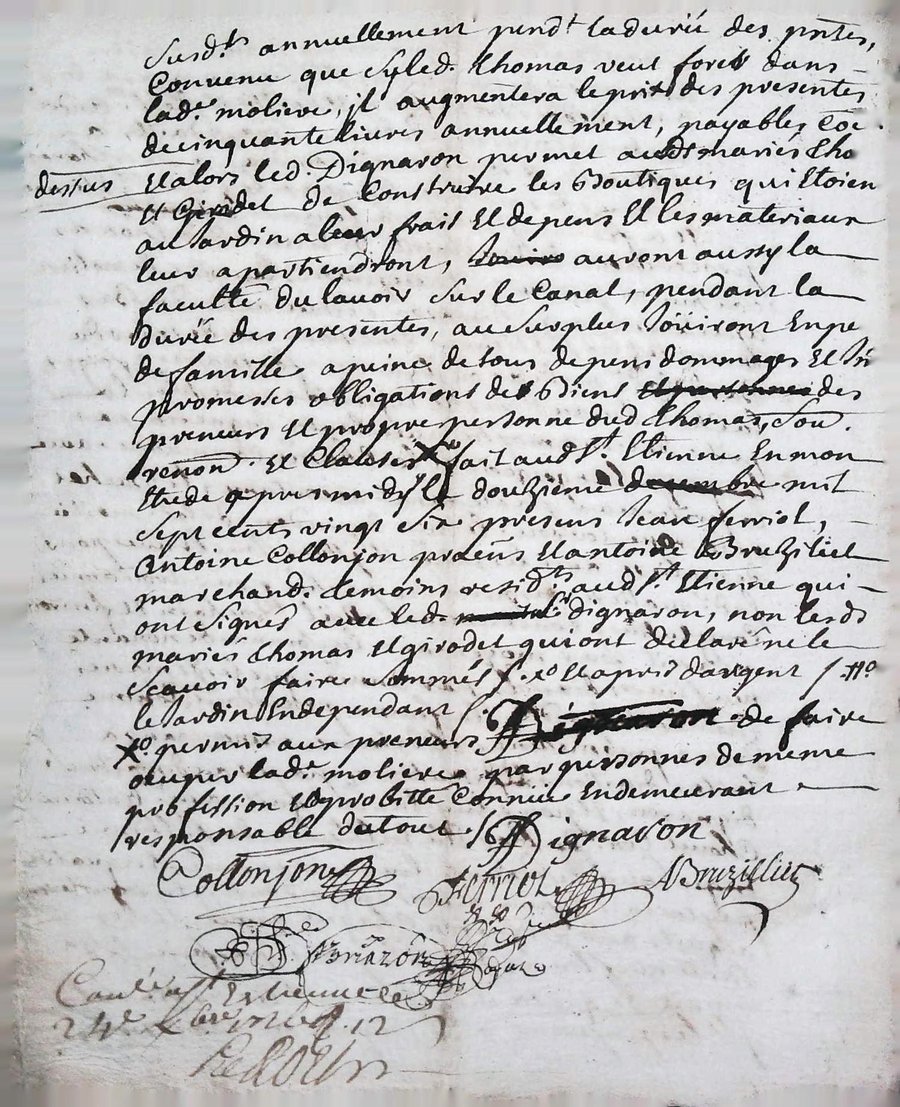 Susd.ts annuellement pend.t la durée des pntes,
Convenu que sy led. Thomas veut forer dans
lad.e moliere, il augmentera le prix des presentes
de cinquante livres annuellement, payables Coe.
dessus Et alors led. Dignaron permet ausd.ts mariés Tho
Et Girodet de Construire les Boutiques qui Etoien
au Jardin a leur frait Et depens Et les materiaux
leur apartiendront, auront aussy la
faculté du lavoir sur le Canal, pendant la
durée des presentes, au surplus Joüiront En pe
de famille a peine de tous depens dommages Et In
promesses obligations des Biens Et personnes des
preneurs Et propre personne dud Thomas, Sou.
renon. Et Clauses fait aud St. Etienne En mon
Etude apres midy le douzieme decembre mil
Sept cents vingt six presens Jean ferriol,
Antoine Collonjon praëns Et antoine Bruziliet
marchand. temoins resid.ts aud St Etienne qui
ont signés avec led. dignaron, non lesd.
mariés Thomas Et girodet qui ont declaré ne le
scavoir faire sommés /. xo Et apris d'argent / #o
le Jardin Independant /. Dignaron de faire
xo permis aux preneurs
occuper lad.e moliere par personnes de meme
profession Et probitté Connüe En demeurant
responsable du tout ./. Dignaron
Collonjon Ferriol ABruzilliet
24e